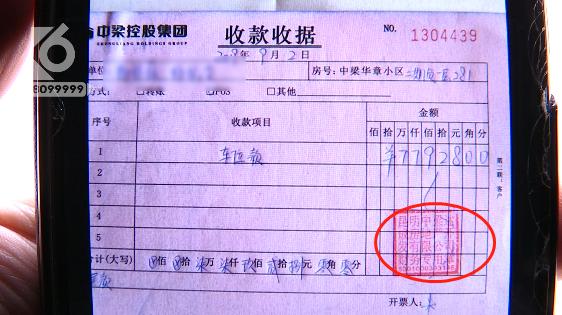 K6
8099999
中梁控股集团
ZHONGLIANG HOLDINGS GROUP
收款收据
NO. 1304439
年9月2日
单位
房号：中梁华章小区
方式：□转账 □POS □其他
序号 收款项目 金额
佰拾万仟佰拾元角分
1 车位款 ¥7792800
2
3
4
5
合计(大写) 佰 拾柒万柒仟玖佰贰拾捌元零角零分
开票人：
第二联：客户
有限公司
财务专用章